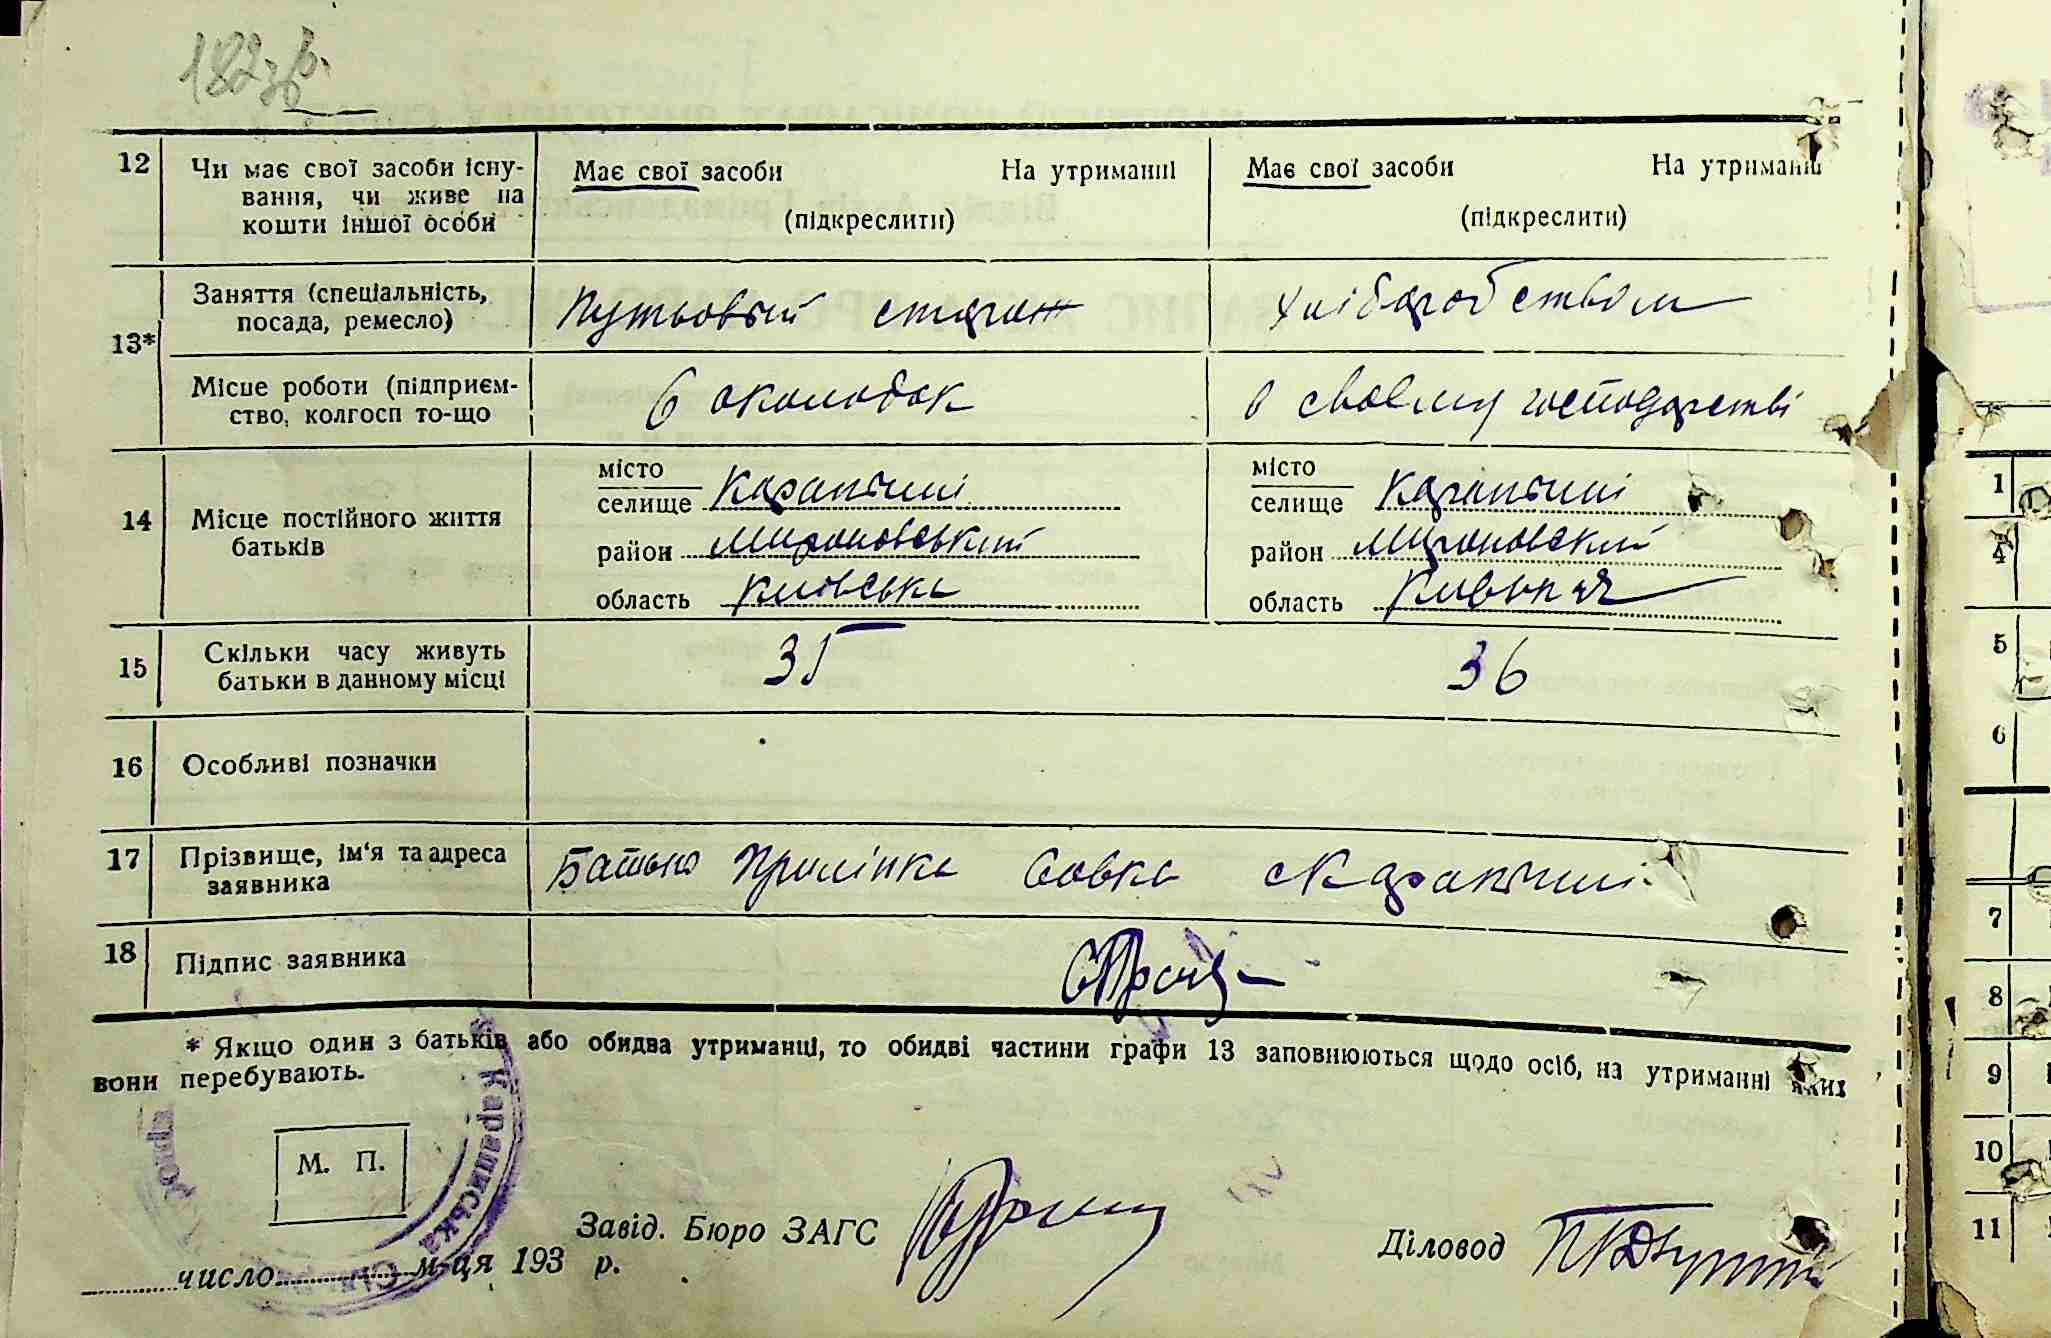 182 зв.
12 Чи має свої засоби існу-
вання, чи живе на
кошти іншої особи
Має свої засоби На утриманні
(підкреслити)
Має свої засоби На утриманні
(підкреслити)
13*
Заняття (спеціальність,
посада, ремесло)
Путьовый сторож
хліборобством
Місце роботи (підприєм-
ство, колгосп то-що
6 околодок
в своєму господарстві
14 Місце постійного життя
батьків
місто
селище Карапиші
район Мироновський
область Київська
місто
селище Карапиші
район Мироновский
область
15 Скільки часу живуть
батьки в данному місці
35
36
16 Особливі позначки
17 Прізвище, ім'я та адреса
заявника
Батько Савка с Карапиші
18 Підпис заявника
* Якщо один з батьків або обидва утриманці, то обидві частини графи 13 заповнюються щодо осіб, на утриманні яких
вони перебувають.
М. П.
Караписька
Завід. Бюро ЗАГС
Діловод
число м-ця 193 р.
1
4
5
6
7
8
9
10
11